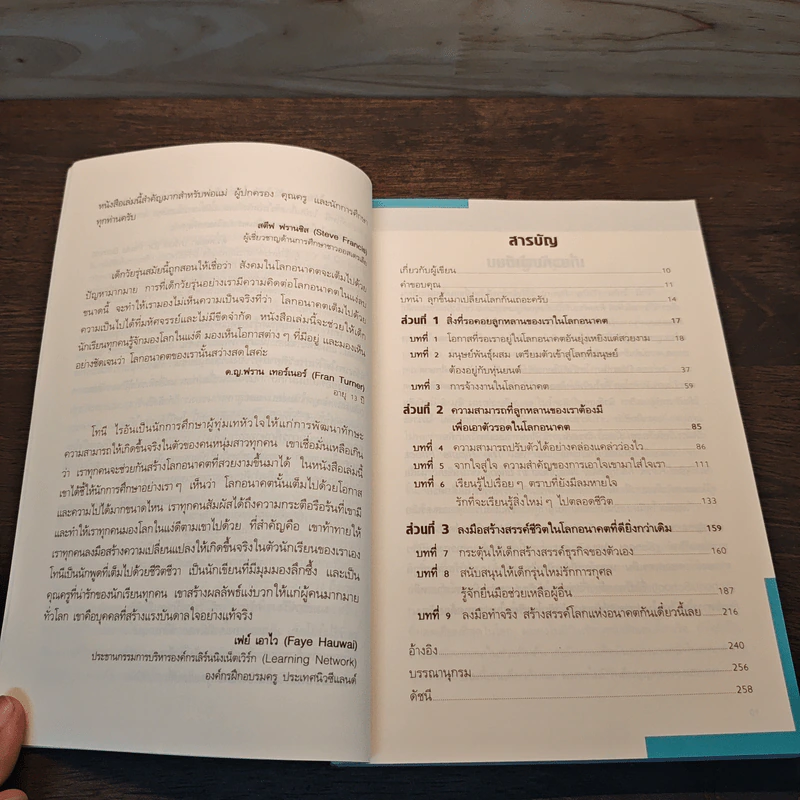 หนังสือเล่มนี้สำคัญมากสำหรับพ่อแม่ ผู้ปกครอง คุณครู และนักการศึกษา
ทุกท่านครับ
สตีฟ ฟรานซิส (Steve Francis)
ผู้เชี่ยวชาญด้านการศึกษาชาวออสเตรเลีย
เด็กวัยรุ่นสมัยนี้ถูกสอนให้เชื่อว่า สังคมในโลกอนาคตจะเต็มไปด้วย
ปัญหามากมาย การที่เด็กวัยรุ่นอย่างเรามีความคิดต่อโลกอนาคตในแง่ลบ
ขนาดนี้ จะทำให้เรามองไม่เห็นความเป็นจริงที่ว่า โลกอนาคตเต็มไปด้วย
ความเป็นไปได้ที่มหัศจรรย์และไม่มีขีดจำกัด หนังสือเล่มนี้จะช่วยให้เด็ก
นักเรียนทุกคนรู้จักมองโลกในแง่ดี มองเห็นโอกาสต่าง ๆ ที่มีอยู่ และมองเห็น
อย่างชัดเจนว่า โลกอนาคตของเรานั้นสว่างสดใสค่ะ
ด.ญ.ฟราน เทอร์เนอร์ (Fran Turner)
อายุ 13 ปี
โทนี ไรอันเป็นนักการศึกษาผู้ทุ่มเทหัวใจให้แก่การพัฒนาทักษะ
ความสามารถให้เกิดขึ้นจริงในตัวของคนหนุ่มสาวทุกคน เขาเชื่อมั่นเหลือเกิน
ว่า เราทุกคนจะช่วยกันสร้างโลกอนาคตที่สวยงามขึ้นมาได้ ในหนังสือเล่มนี้
เขาได้ชี้ให้นักการศึกษาอย่างเรา ๆ เห็นว่า โลกอนาคตนั้นเต็มไปด้วยโอกาส
และความเป็นไปได้มากขนาดไหน เราทุกคนสัมผัสได้ถึงความกระตือรือร้นที่เขามี
และทำให้เราทุกคนมองโลกในแง่ดีตามเขาไปด้วย ที่สำคัญคือ เขาท้าทายให้
เราทุกคนลงมือสร้างความเปลี่ยนแปลงให้เกิดขึ้นจริงในตัวนักเรียนของเราเอง
โทนีเป็นนักพูดที่เต็มไปด้วยชีวิตชีวา เป็นนักเขียนที่มีมุมมองลึกซึ้ง และเป็น
คุณครูที่น่ารักของนักเรียนทุกคน เขาสร้างผลลัพธ์แง่บวกให้แก่ผู้คนมากมาย
ทั่วโลก เขาคือบุคคลที่สร้างแรงบันดาลใจอย่างแท้จริง
เฟย์ เอาไว (Faye Hauwai)
ประธานกรรมการบริหารองค์กรเลิร์นนิงเน็ตเวิร์ก (Learning Network)
องค์กรฝึกอบรมครู ประเทศนิวซีแลนด์
สารบัญ
เกี่ยวกับผู้เขียน 10
คำขอบคุณ 11
บทนำ ลุกขึ้นมาเปลี่ยนโลกกันเถอะครับ 14
ส่วนที่ 1 สิ่งที่รอคอยลูกหลานของเราในโลกอนาคต 17
บทที่ 1 โอกาสที่รอเราอยู่ในโลกอนาคตอันยุ่งเหยิงแต่สวยงาม 18
บทที่ 2 มนุษย์พันธุ์ผสม เตรียมตัวเข้าสู่โลกที่มนุษย์
ต้องอยู่กับหุ่นยนต์ 37
บทที่ 3 การจ้างงานในโลกอนาคต 59
ส่วนที่ 2 ความสามารถที่ลูกหลานของเราต้องมี
เพื่อเอาตัวรอดในโลกอนาคต 85
บทที่ 4 ความสามารถปรับตัวได้อย่างคล่องแคล่วว่องไว 86
บทที่ 5 จากใจสู่ใจ ความสำคัญของการเอาใจเขามาใส่ใจเรา 111
บทที่ 6 เรียนรู้ไปเรื่อย ๆ ตราบที่ยังมีลมหายใจ
รักที่จะเรียนรู้สิ่งใหม่ ๆ ไปตลอดชีวิต 133
ส่วนที่ 3 ลงมือสร้างสรรค์ชีวิตในโลกอนาคตที่ดียิ่งกว่าเดิม 159
บทที่ 7 กระตุ้นให้เด็กสร้างสรรค์ธุรกิจของตัวเอง 160
บทที่ 8 สนับสนุนให้เด็กรุ่นใหม่รักการกุศล
รู้จักยื่นมือช่วยเหลือผู้อื่น 187
บทที่ 9 ลงมือทำจริง สร้างสรรค์โลกแห่งอนาคตกันเดี๋ยวนี้เลย 216
อ้างอิง 240
บรรณานุกรม 256
ดัชนี 258